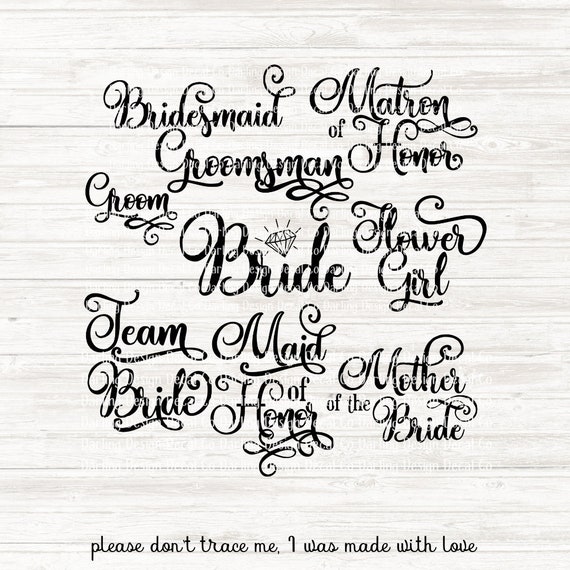 Bridesmaid
Matron
of
Honor
Groomsman
Groom
Bride
Flower
Girl
Team
Bride
Maid
of
Honor
Mother
of the
Bride
please don't trace me, I was made with love